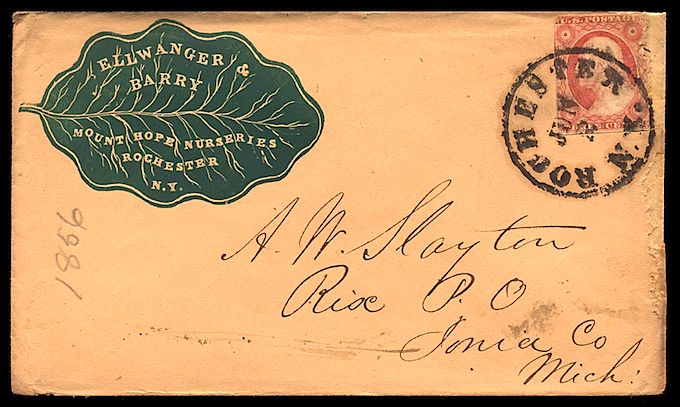 ELLWANGER &
BARRY
MOUNT HOPE NURSERIES
ROCHESTER
N.Y.
U.S. POSTAGE
ROCHESTER N.Y.
JUN
2
1856
A. W. Slayton
Rix P. O
Ionia Co
Mich: